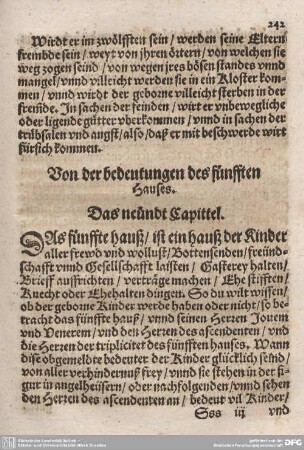 242
Wirdt er im zwölfften sein / werden seine Eltern
frembde sein / weyt von jhren örtern / von welchen sie
weg zogen seind / von wegen jres bösen standes vnnd
mangel / vnnd villeicht werden sie in ein Kloster kom-
men / vnnd wirdt der geborne villeicht sterben in der
frembde. In sachen der feinden / wirt er vnbewegliche
oder ligende gütter vberkommen / vnnd in sachen der
trübsalen vnd angst / also / daß er mit beschwerde wirt
fürsich kommen.
Von der bedeutungen des fünfften
Hauses.
Das neündt Capittel.
DAs fünffte hauß / ist ein hauß der Kinder
aller frewd vnd wollust / Bottensenden / freünd-
schafft vnnd Gesellschafft laisten / Gasterey halten /
Brieff auffrichten / verträge machen / Ehe stifften /
Knecht oder Ehehalten dingen. So du wilt wissen /
ob der geborne Kinder werde haben oder nicht / so be-
tracht das fünfft hauß / vnnd seinen Herrn Jouem
vnd Venerem / vnd den Herzen des ascendenten / vnd
die Herzen der triplicitet des fünfften hauses. Wann
dise obgemeldte bedeuter der Kinder glücklich seind /
von aller verhindernuß frey / vnnd sie stehen in der fi-
gur in angelheüsern / oder nachfolgenden / vnnd sehen
den Herzen des ascendenten an / bedeut vil Kinder /
Sss iij vnd